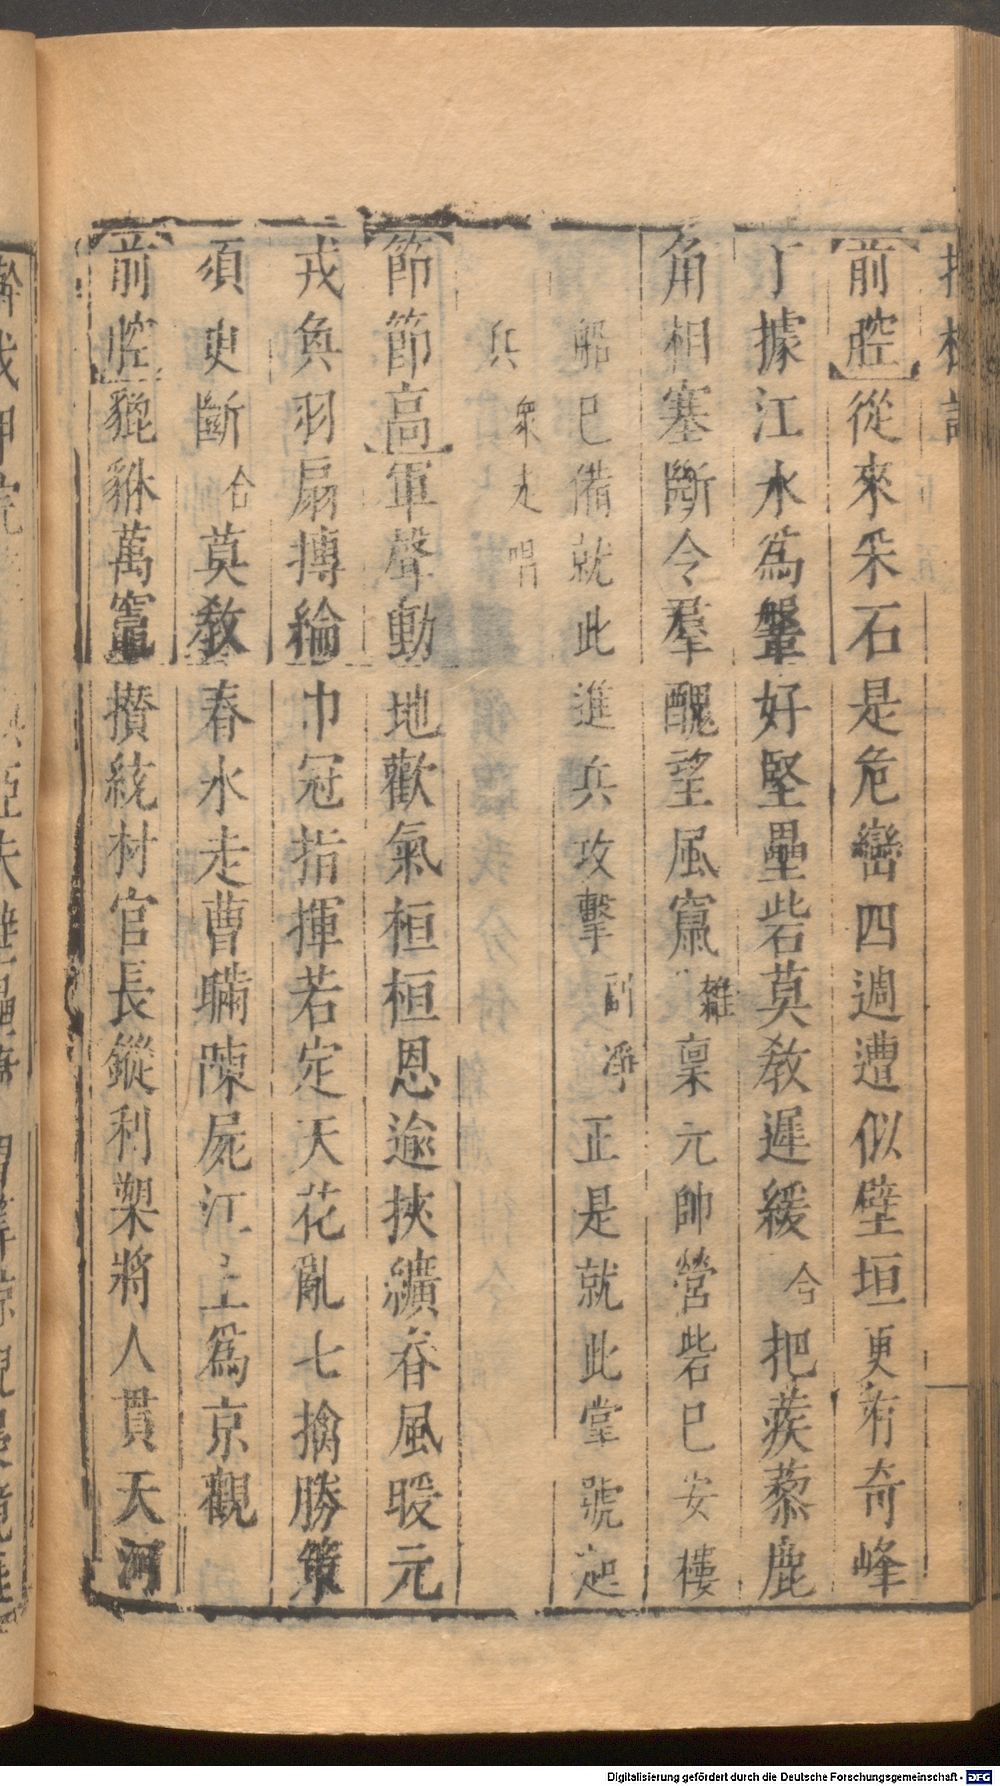 前腔從來采石是危巒四週遭似壁垣更有奇峰
丁據江水爲盤好堅壘砦莫教遲緩合把蒺藜鹿
角相塞斷令羣醜望風竄雜稟元帥營砦已安樓
船已備就此進兵攻擊副淨正是就此掌號起
兵衆走唱
節節高軍聲動地歡氣桓桓恩逾挾纊春風暖元
戎奐羽扇摶綸巾冠指揮若定天花亂七擒勝策
須史斷合莫教春水走曹瞞陳屍江上爲京觀
前腔貔貅萬竈攢統材官長鏦利槊將人貫天河
Digitalisierung gefördert durch die Deutsche Forschungsgemeinschaft - DFG